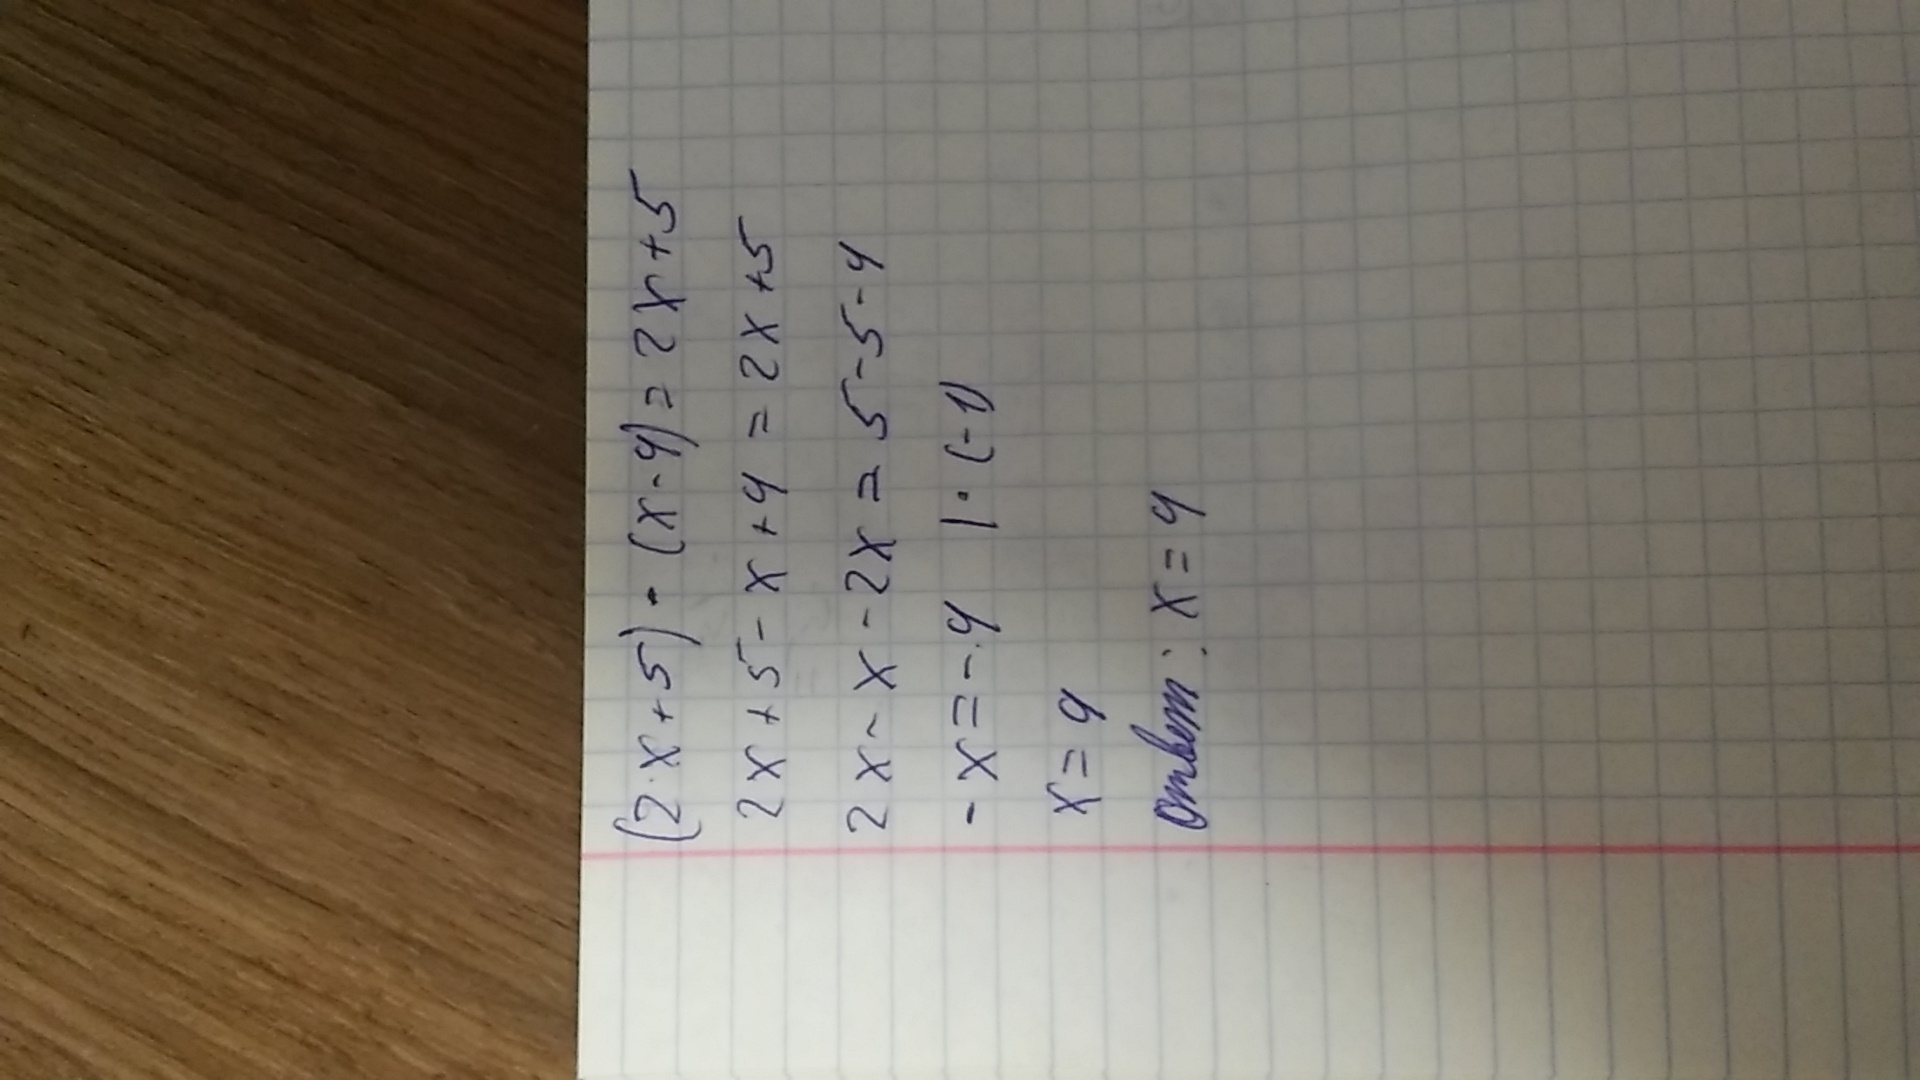 (2x+5) - (x-4) = 2x+5
2x+5-x+4 = 2x+5
2x-x-2x = 5-5-4
-x = -4 | · (-1)
x = 4
Ответ: x = 4